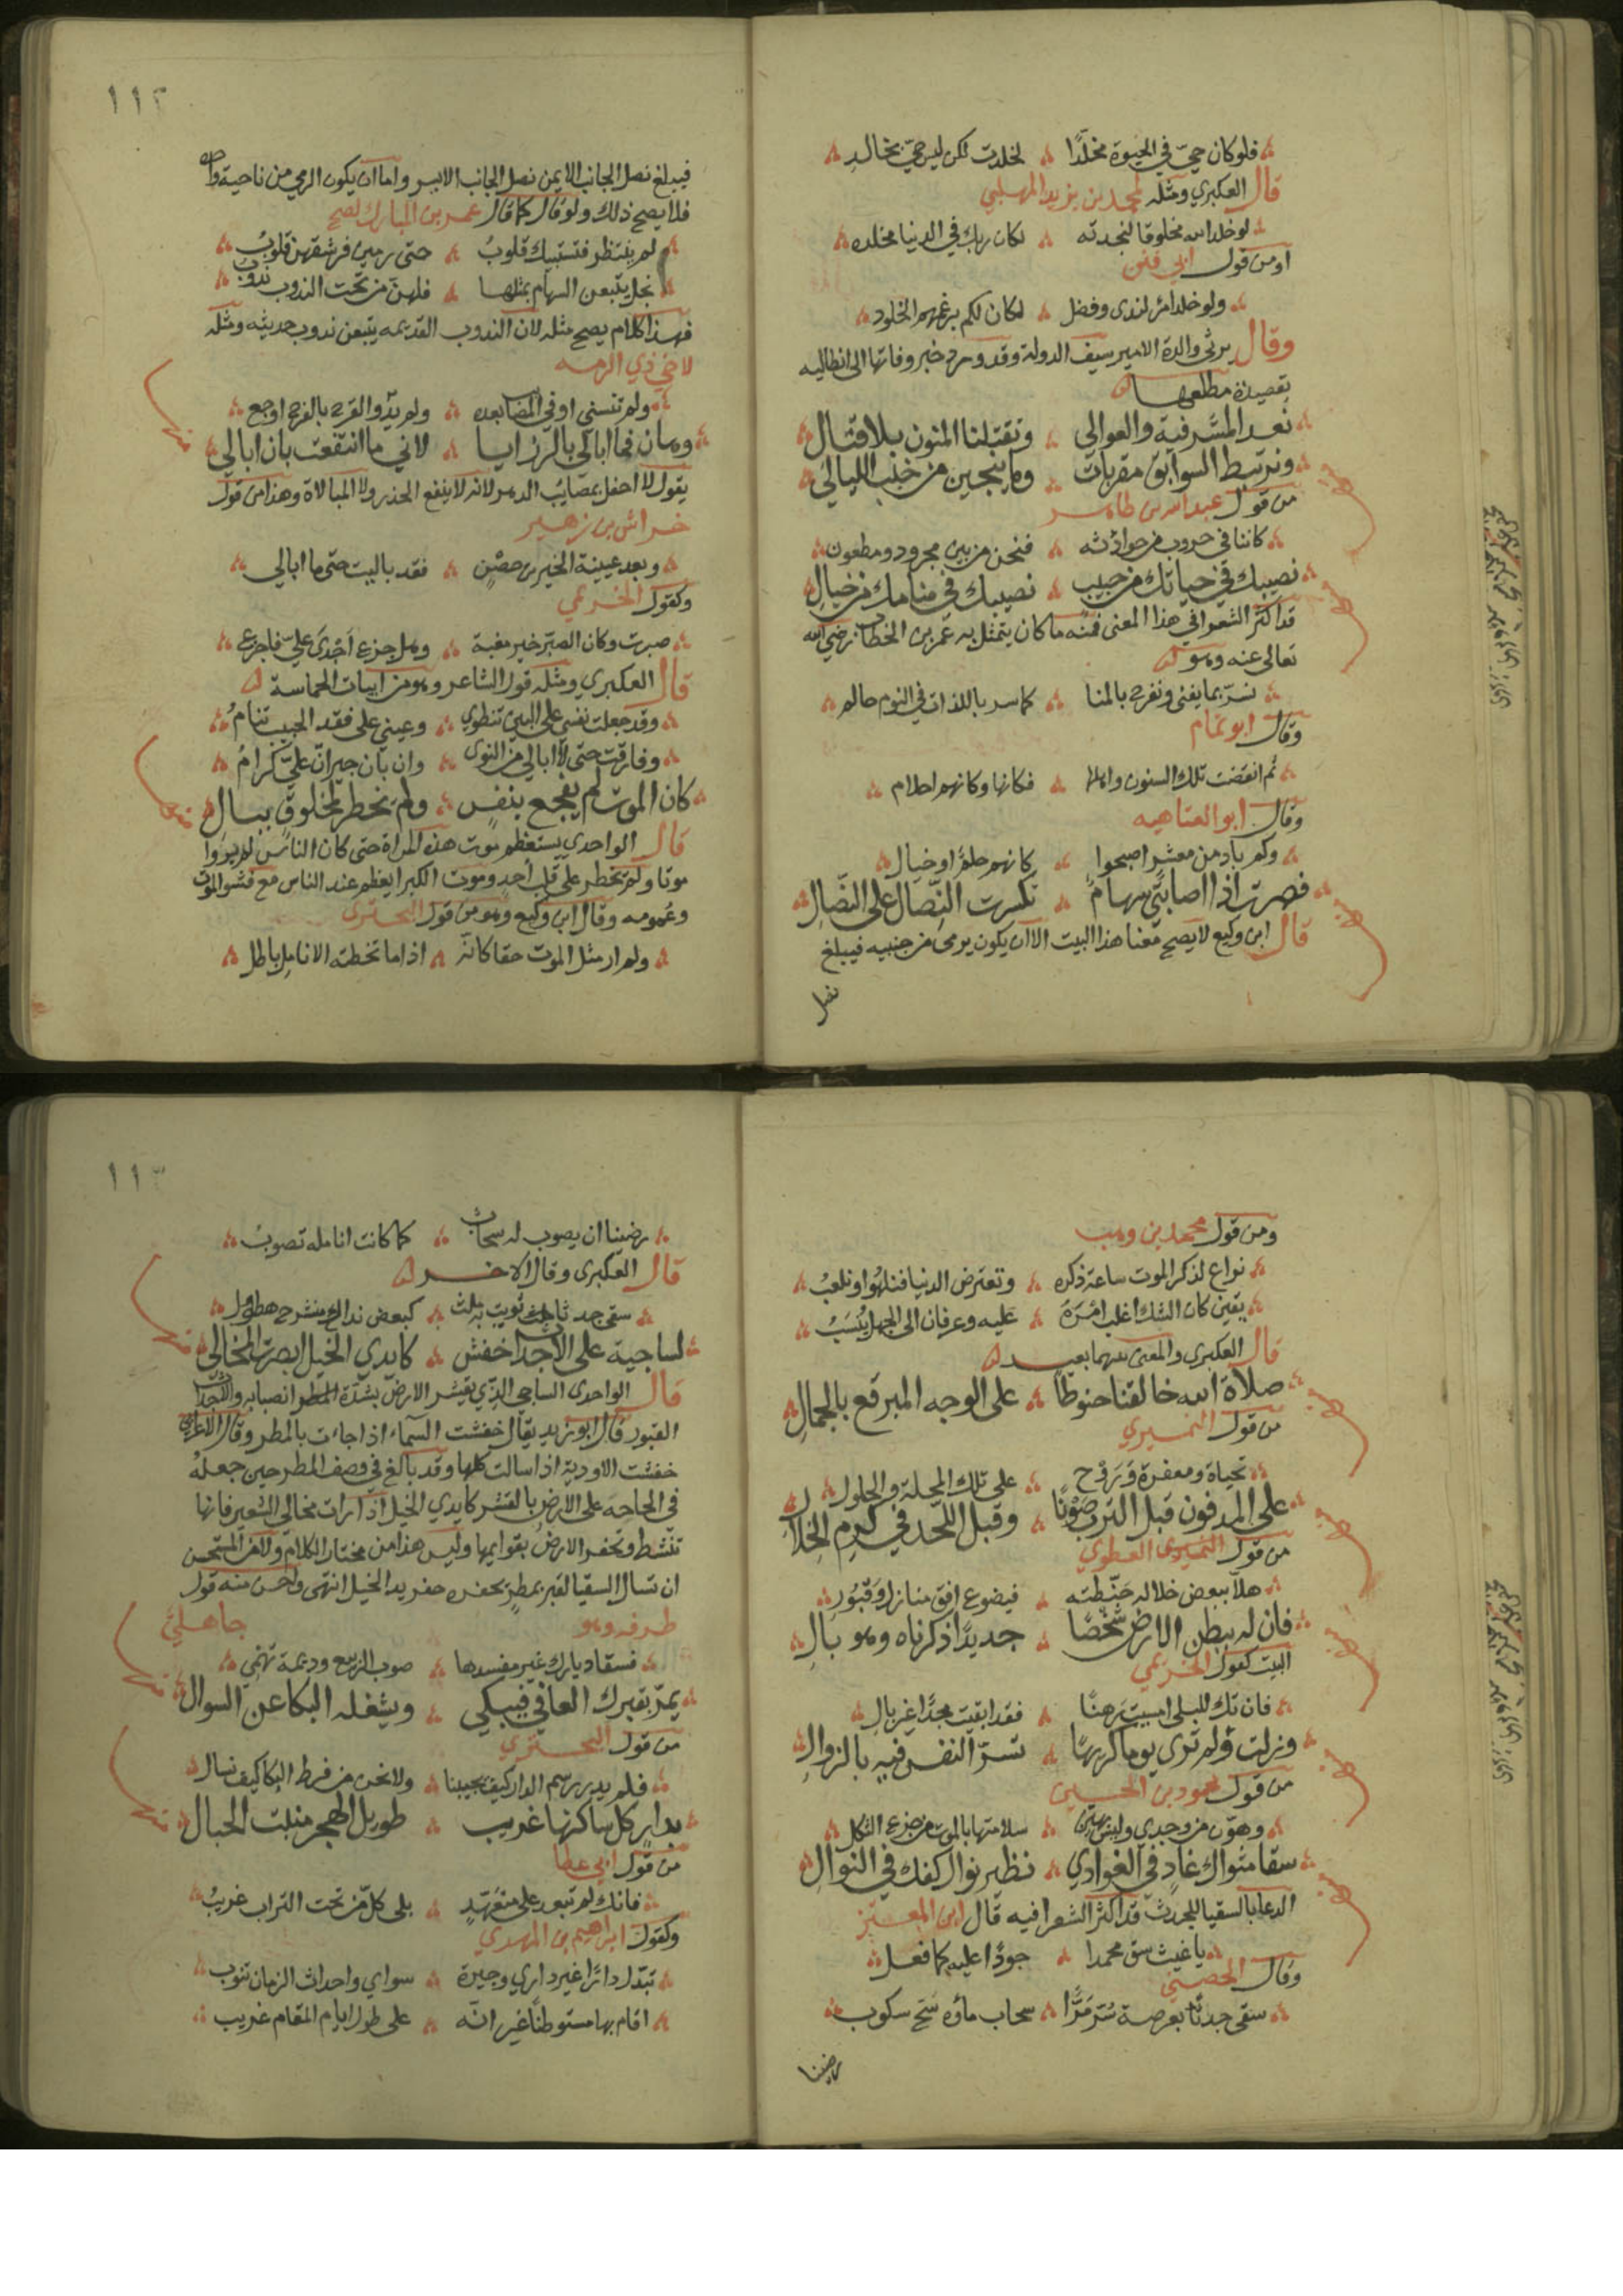 فلو كان حيّ في الحيوة مخلّدًا ∴ لخلدت لكن ليس حيّ بخالدِ
قال العكبري ومثله لمحمد بن يزيد المهلبي
لو خلد الله مخلوقا لنجدته ∴ لكان ربك في الدنيا مخلده
او من قول ابي فنن
ولو خلد امرؤ لندى وفضل ∴ لكان لكم برغمهم الخلود
وقال يرثي والدة الامير سيف الدولة وقد ورد خبر وفاتها الى انطاليه
بقصيدة مطلعها
نعد المشرفية والعوالي ∴ وتقتلنا المنون بلا قتال
ونرتبط السوابق مقربات ∴ وما ينجين من خبب الليالي
من قول عبد الله بن طاهر
كاننا في حروب من حوادثه ∴ فنحن من بين مجرود ومطعون
نصيبك في حياتك من حبيب ∴ نصيبك في منامك من خيالِ
قد اكثر الشعرا في هذا المعنى فمنه ما كان يتمثل به عمر بن الخطاب رضي الله
تعالى عنه وهو
نسرّ بما يفنى ونفرح بالمنا ∴ كما سر باللذات في النوم حالم
وقال ابو تمام
ثم انقضت تلك السنون واهلها ∴ فكانها وكانهم احلام
وقال ابو العتاهيه
وكم باد من معشر اصبحوا ∴ كانهم حلمًا او خيال
فصرت اذا اصابتني سهامٌ ∴ تكسرت النّصال على النّصالِ
قال ابن وكيع لا يصح معنا هذا البيت الا ان يكون يرمى من جنبيه فيبلغ
نصل
١١٢
فيبلغ نصل الجانب الايمن نصل الجانب الايسر واما ان يكون الرمي من ناحية واحده
فلا يصح ذلك ولو قال كما قال عمر بن المبارك لصح
لم ينتظر فتستبيك قلوبُ ∴ حتى رمين فرشقهن قلوبُ
نجل يتبعن السهام بمثلها ∴ فلهن من تحت الندوب ندوبُ
فهذا كلام يصح مثله لان الندوب القديمه يتبعن ندوب حديثه ومثله
لاخي ذي الرمه
ولم تنسني اوفى المصائب بعده ∴ ولم يدو القرح بالقرح اوجع
وهان فما ابالي بالرزايا ∴ لاني ما انتفعت بان ابالي
يقول لا احفل بمصايب الدهر لانه لا ينفع الحذر ولا المبالاة وهذا من قول
خراش بن زهير
وبعد عيينة الخير بن حصْنٍ ∴ فقد باليت حتى ما ابالي
وكقول الخريمي
صبرت وكان الصبر خير مغبة ∴ وهل جزع اجْدَى عليّ فاجزع
قال العكبري ومثله قول الشاعر وهو من ابيات الحماسة
وقد جعلت نفسي على البين تنطوي ∴ وعيني على فقد الحبيب تنامُ
وفارقت حتى لا ابالي من النوى ∴ وان بان جيرانٌ عليّ كرامُ
كان الموت لم يفجع بنفسٍ ∴ ولم يخطر لمخلوق ببال
قال الواحدي يستعظم موت هذه المراة حتى كان الناس لم يروا
موتا ولم يخطر على قلب أحد وموت الكبرا يعظم عند الناس مع فشو الموت
وعمومه وقال ابن وكيع وهو من قول البحتري
ولم ار مثل الموت حقا كانه ∴ اذا ما تخطته الانامل باطل
ومن قول محمد بن وهب
نراع لذكر الموت ساعة ذكره ∴ وتعترض الدنيا فنلهُوا ونلعبُ
يقين كان الشك اغلب امْرَهُ ∴ عليه وعرفان الى الجهل يُنسَبُ
قال العكبري والمعنى بينهما بعيد
صلاة الله خالقنا حنوطٌ ∴ على الوجه المبرقع بالجمالِ
من قول النميري
تحياة ومغفرة وَرَوْح ∴ على تلك المحلة والحلول
على المدفون قبل الترب صَوْنًا ∴ وقبل اللّحد في كرم الخِلالِ
من قول النميري العطوي
هلّا ببعض خلاله حَنّطته ∴ فيضوع افق منازل وقبُورِ
فان له ببطن الارض شخصًا ∴ جديدًا ذكرناه وهو بالِ
البيت كقول الخريمي
فان تك للبلى امسيت رَهنًا ∴ فقد ابقيت مجدًا غير بالِ
ونزلت ولم تري يوما كريهًا ∴ تسرّ النفس فيه بالزوالِ
من قول محمود بن الحسين
وهوّن من وجدي وليس بهين ∴ سلامتها بالموت من جزع الثكل
سقا مثواك غادٍ في الغوادي ∴ نظير نوال كفك في النوالِ
الدعا بالسقيا للجدث قد اكثر الشعرا فيه قال ابن المعتز
يا غيث سق محمدا ∴ جودًا عليه كما فعل
وقال الحصني
سقى جدثًا بعرصة سُرّ مَرَّا ∴ سحاب ماؤه سَحّ سكوب
رضينا
١١٣
رضينا ان يصوب له سحاب ∴ كما كانت انامله تصوبُ
قال العكبري وقال الاخر
سقى جدثا حيث ثويت به ملث ∴ كبعض نداك منشرح هطول
لساجيه على الاجداث خفش ∴ كايدي الخيل ابصرت المخالي
قال الواحدي الساحي الذي يقشر الارض بشدّة المطر انصبابه والاجداث
القبور قال ابو زيد يقال خفشت السماء اذا جاءت بالمطر وقال الاعرابي
خفشت الاودية اذا سالت كلها وقد بالغ في وصف المطر حين جعله
في الحاحه على الارض بالقشر كايدي الخيل اذا رات مخالي الشعير فانها
تنشط وتحفر الارض بقوايمها وليس هذا من مختار الكلام ولا من المستحسن
ان تسال السقيا لقبر بمطر يحفره حفر يد الخيل انتهى واحسن منه قول
طرفه وهو جاهليٌ
فسقا ديارك غير مفسدها ∴ صوب الربيع وديمة تهمي
يمرّ بقبرك العافي فيبكي ∴ ويشغله البكا عن السوال
من قول البحتري
فلم يدر رسم الدار كيف يجيبنا ∴ ولا نحن من فرط البكا كيف نسال
بدارٍ كل ساكنها غريب ∴ طويل الهجر منبت الحبال
من قول ابي عطا
فانك لم تبعد على متعَهّدٍ ∴ بلى كلّ من تحت التراب غريبُ
وكقول ابراهيم بن المهدي
تبدّل دارًا غير داري وجيرة ∴ سواي واحداث الزمان تنوب
اقام بها مستوطنًا غير انه ∴ على طول ايام المقام غريب